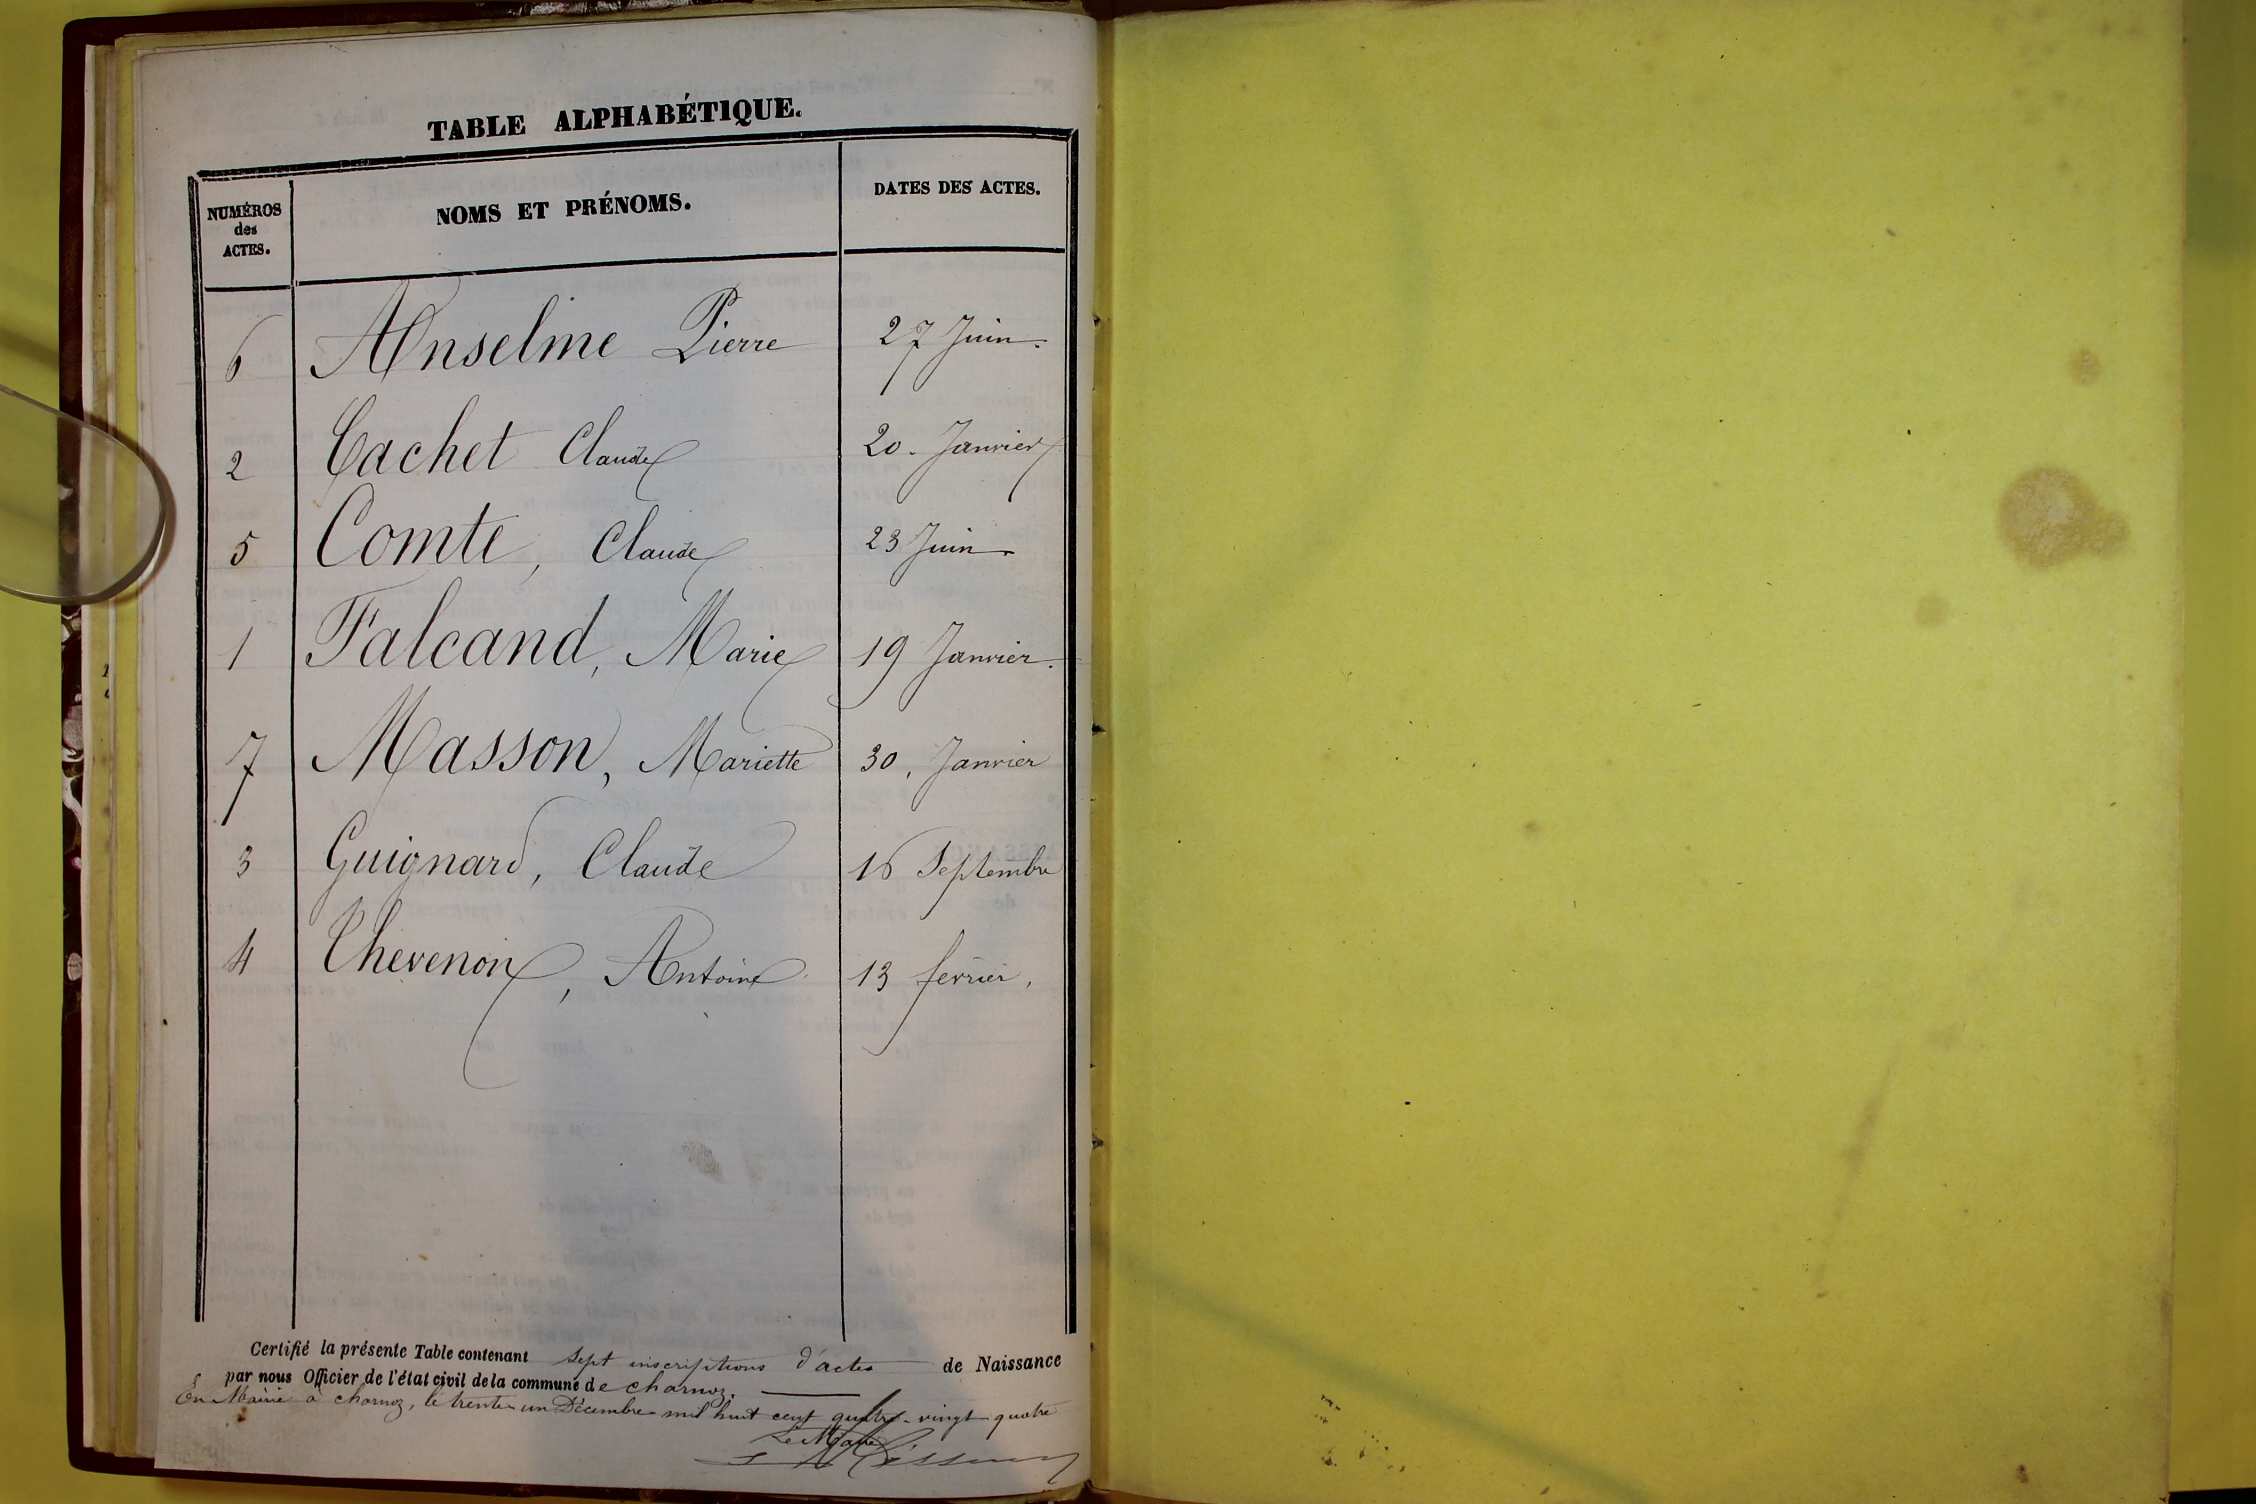 TABLE ALPHABÉTIQUE.
NUMÉROS des ACTES. NOMS ET PRÉNOMS. DATES DES ACTES.
6 Anselme Pierre 27 Juin.
2 Cachet Claude 20. Janvier
5 Comte, Claude 23 Juin.
1 Falcand, Marie 19 Janvier.
7 Masson, Mariette 30, Janvier
3 Guignard, Claude 16 Septembre
4 Thevenon, Antoine 13 février,
Certifié la présente Table contenant sept inscriptions d'actes de Naissance
par nous Officier de l'état civil de la commune de charnoz.
En Mairie à charnoz, le trente-un Décembre mil huit cent quatre-vingt quatre
Le Maire